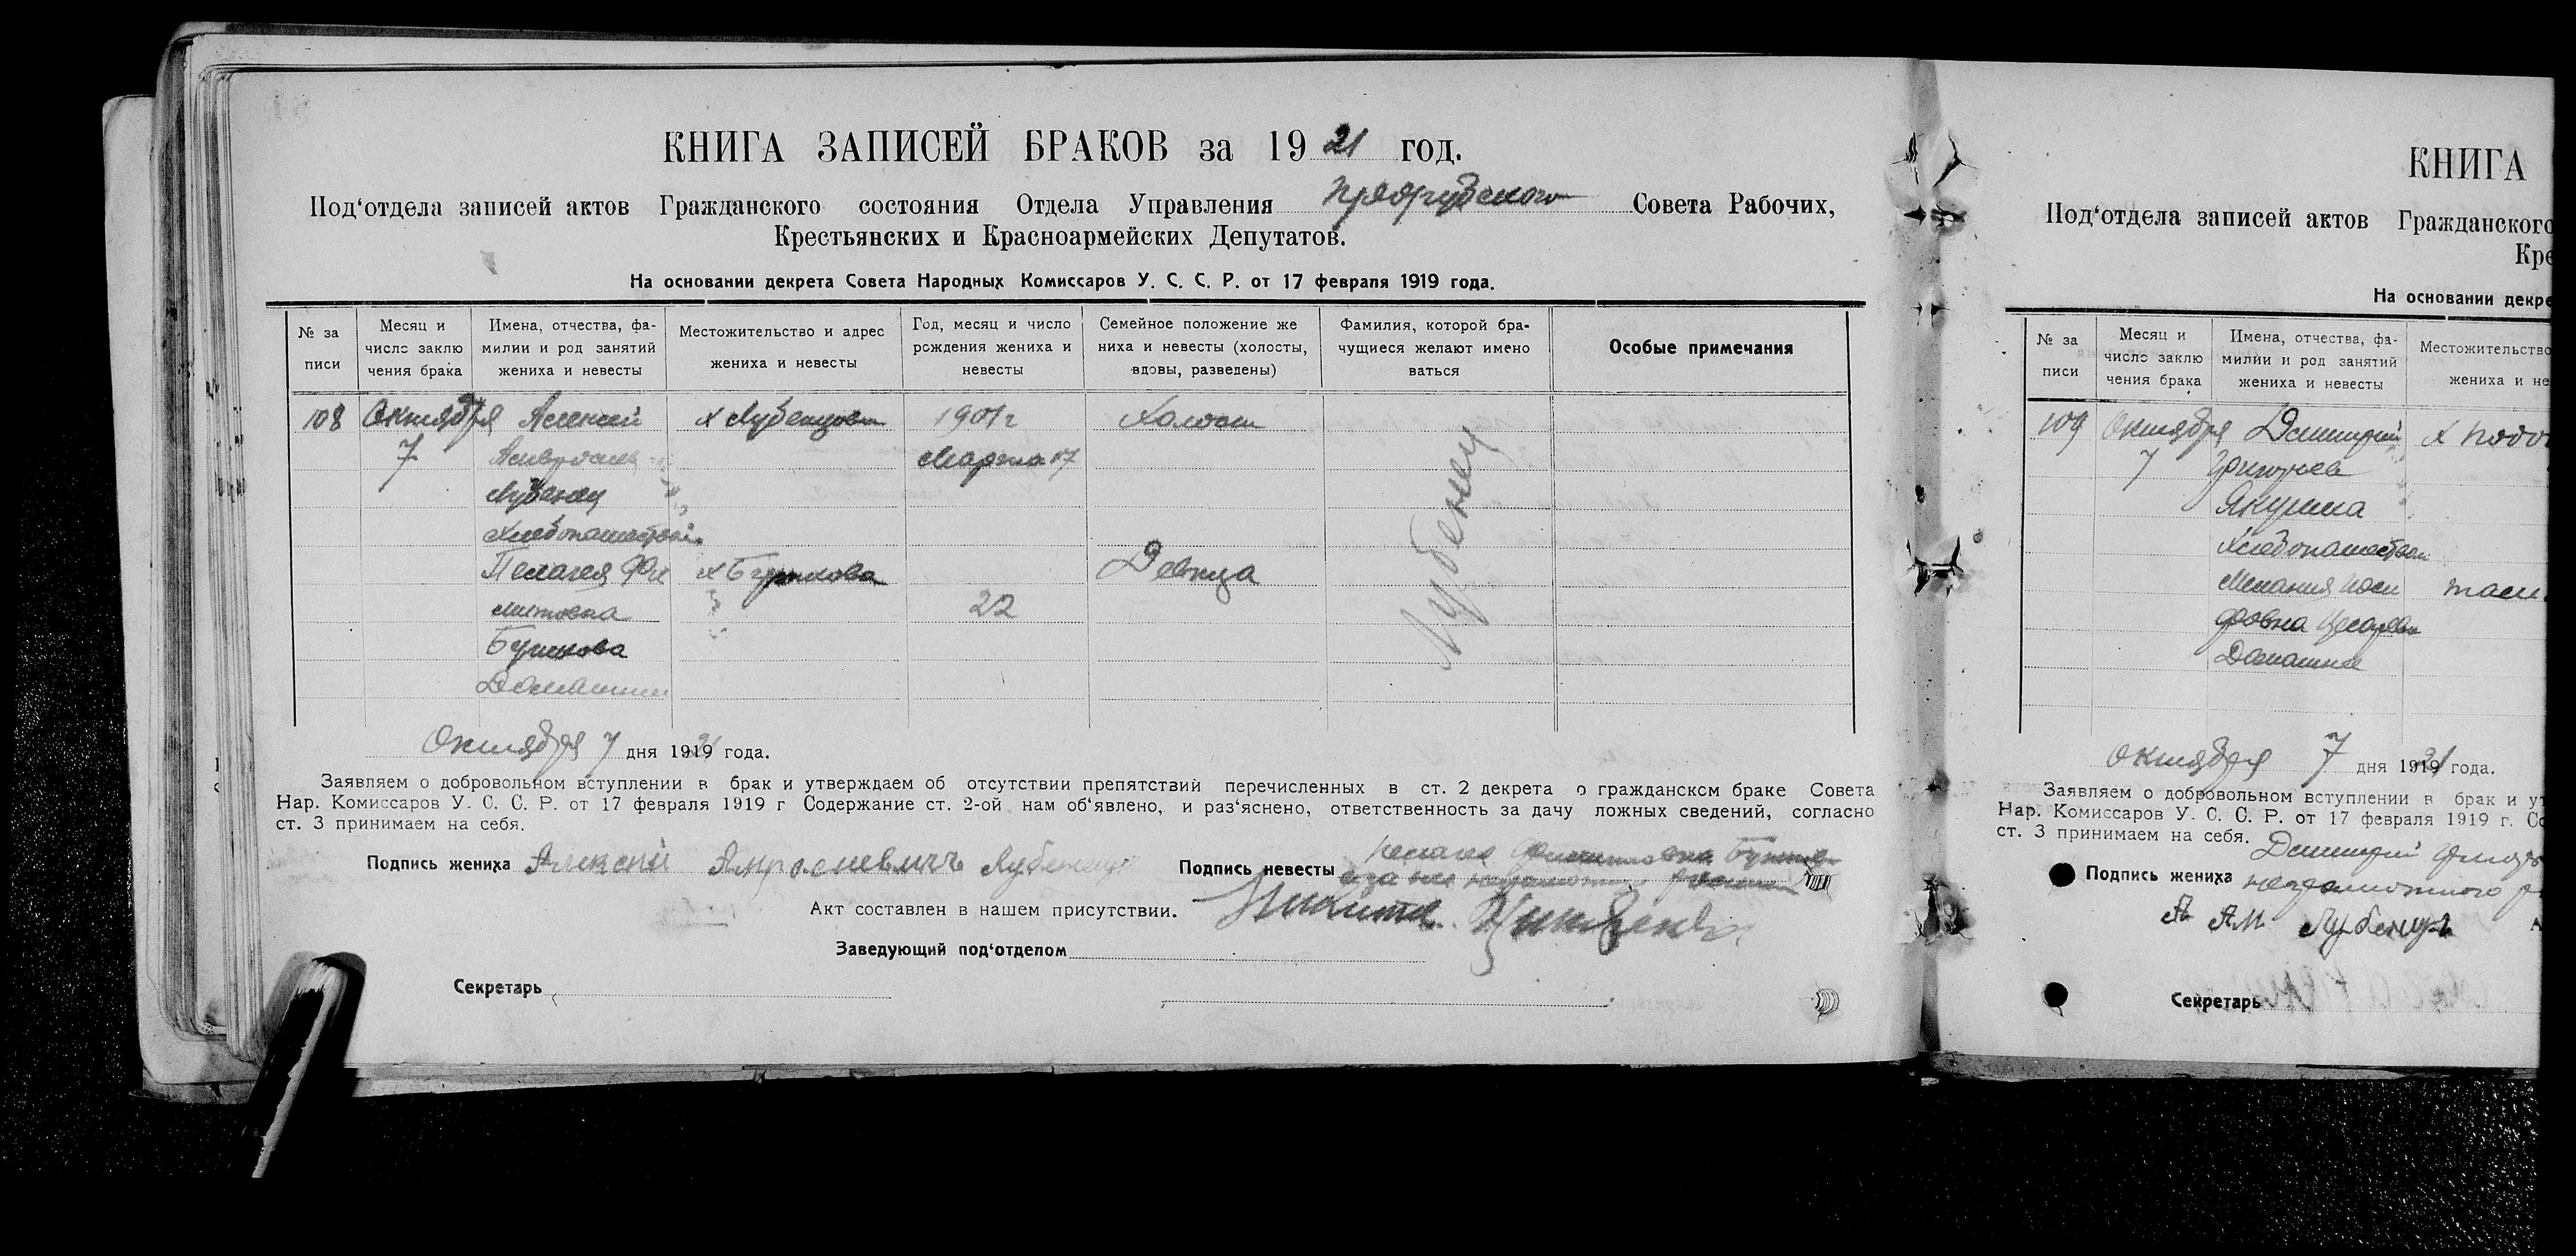 КНИГА ЗАПИСЕЙ БРАКОВ за 1921 год.
Под‘отдела записей актов Гражданского состояния Отдела Управления Совета Рабочих,
Крестьянских и Красноармейских Депутатов.
На основании декрета Совета Народных Комиссаров У. С. С. Р. от 17 февраля 1919 года.
№ за писи
Месяц и число заклю чения брака
Имена, отчества, фа- милии и род занятий жениха и невесты
Местожительство и адрес жениха и невесты
Год, месяц и число рождения жениха и невесты
Семейное положение же ниха и невесты (холосты, вдовы, разведены)
Фамилия, которой бра- чущиеся желают имено ваться
Особые примечания
108 Октября Алексей х Лубенцова 1901г Холост
7 Марта 17
Лубенец
Хлебопашество
Пелагея Фи х Девица
литовна 22
Бушкова
Домашние
Лубенец
Октября 7 дня 1921 года.
Заявляем о добровольном вступлении в брак и утверждаем об отсутствии препятствий перечисленных в ст. 2 декрета о гражданском браке Совета
Нар. Комиссаров У. С. С. Р. от 17 февраля 1919 г Содержание ст. 2-ой нам об‘явлено, и раз‘яснено, ответственность за дачу ложных сведений, согласно
ст. 3 принимаем на себя.
Подпись жениха Алексей Амросиевичъ Лубенецъ
Подпись невесты Пелагея
Акт составлен в нашем присутствии. Никита
Заведующий под‘отделом
Секретарь
КНИГА
Под‘отдела записей актов Гражданского
Кре
На основании декре
№ за писи
Месяц и число заклю чения брака
Имена, отчества, фа- милии и род занятий жениха и невесты
Местожительство жениха и не
109 Октября Дмитрий х
7 Григорьев
Якушка
Хлебопашество
Мелания Иоси
фовна
Домашние
Октября 7 дня 1921 года.
Заявляем о добровольном вступлении в брак и ут
Нар. Комиссаров У. С. С. Р. от 17 февраля 1919 г. Со
ст. 3 принимаем на себя.
Подпись жениха Дмитрий
неграмотного
А АМ Лубенецъ
Секретарь